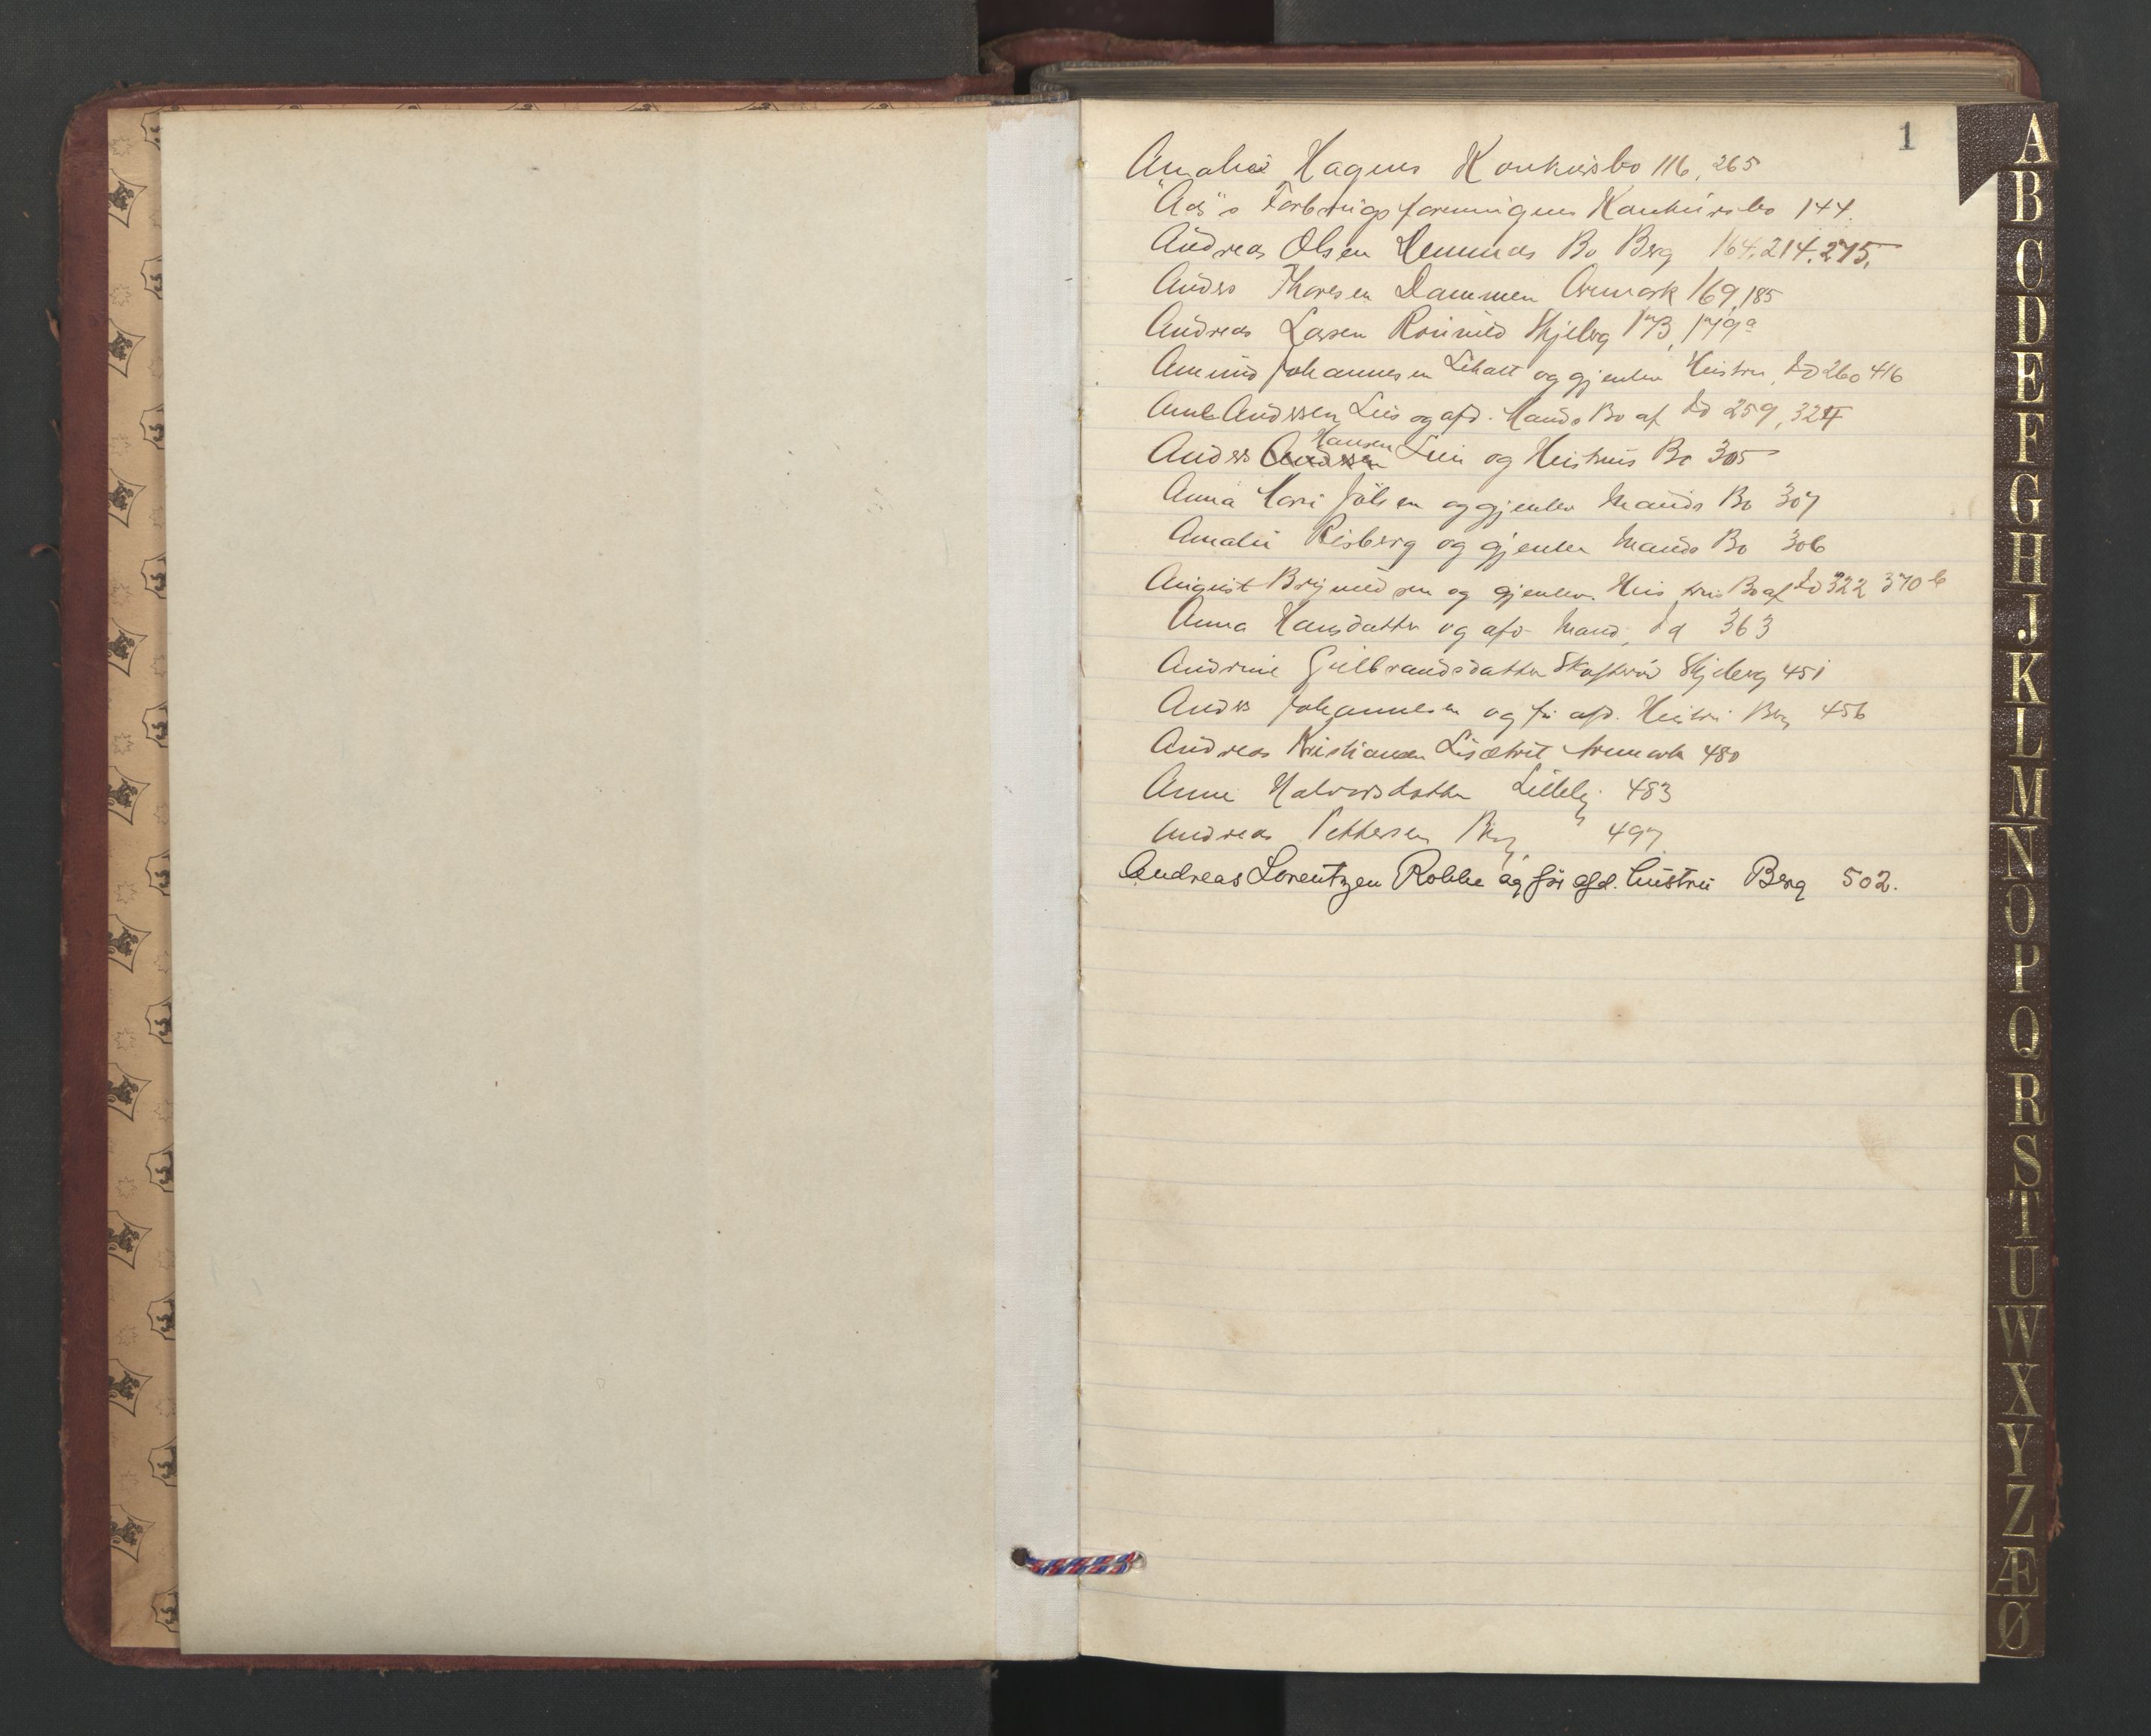 1
Amalie Hagens Konkursbo 116, 265
"Aas"s Forbrugsforenings Konkursbo 144.
Andreas Olsen Hemnæs Bo Berg 164, 214, 275,
Anders Thoresen Dammen Aremark 169, 185
Andreas Larsen Skjeberg 173, 179a
Amund Johannesen og gjenlev Hustru, Id 260 416
Andersen Lie og afd. Mands Bo af Id 259, 324
Hansen
Anders Andersen Lie og Hustrus Bo 305
Anna Mari Jølsen og gjenlev Mands Bo 307
Amalie Risberg og gjenlev Mands Bo 306
August Brynildsen og gjenlev. Hustrus Bo af Id 322 370b
Anna Hansdatter og afd. Mand, Id 363
Andrine Gulbrandsdatter Skjeberg 451
Anders Johannesen og før afd. Hustru Berg 456
Andreas Kristiansen Aremark 480
Anne Halvorsdatter 483
Andreas Pettersen Berg 497.
Andreas Lorentzen Rokke og før afd. hustru Berg 502.
A
B
C
D
E
F
G
H
J
K
L
M
N
O
P
Q
R
S
T
U
W
X
Y
Z
Æ
Ø